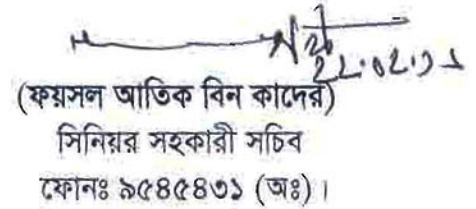 (ফয়সল আতিক বিন কাদের)
সিনিয়র সহকারী সচিব
ফোনঃ ৯৫৪৫৪৩১ (অঃ)।